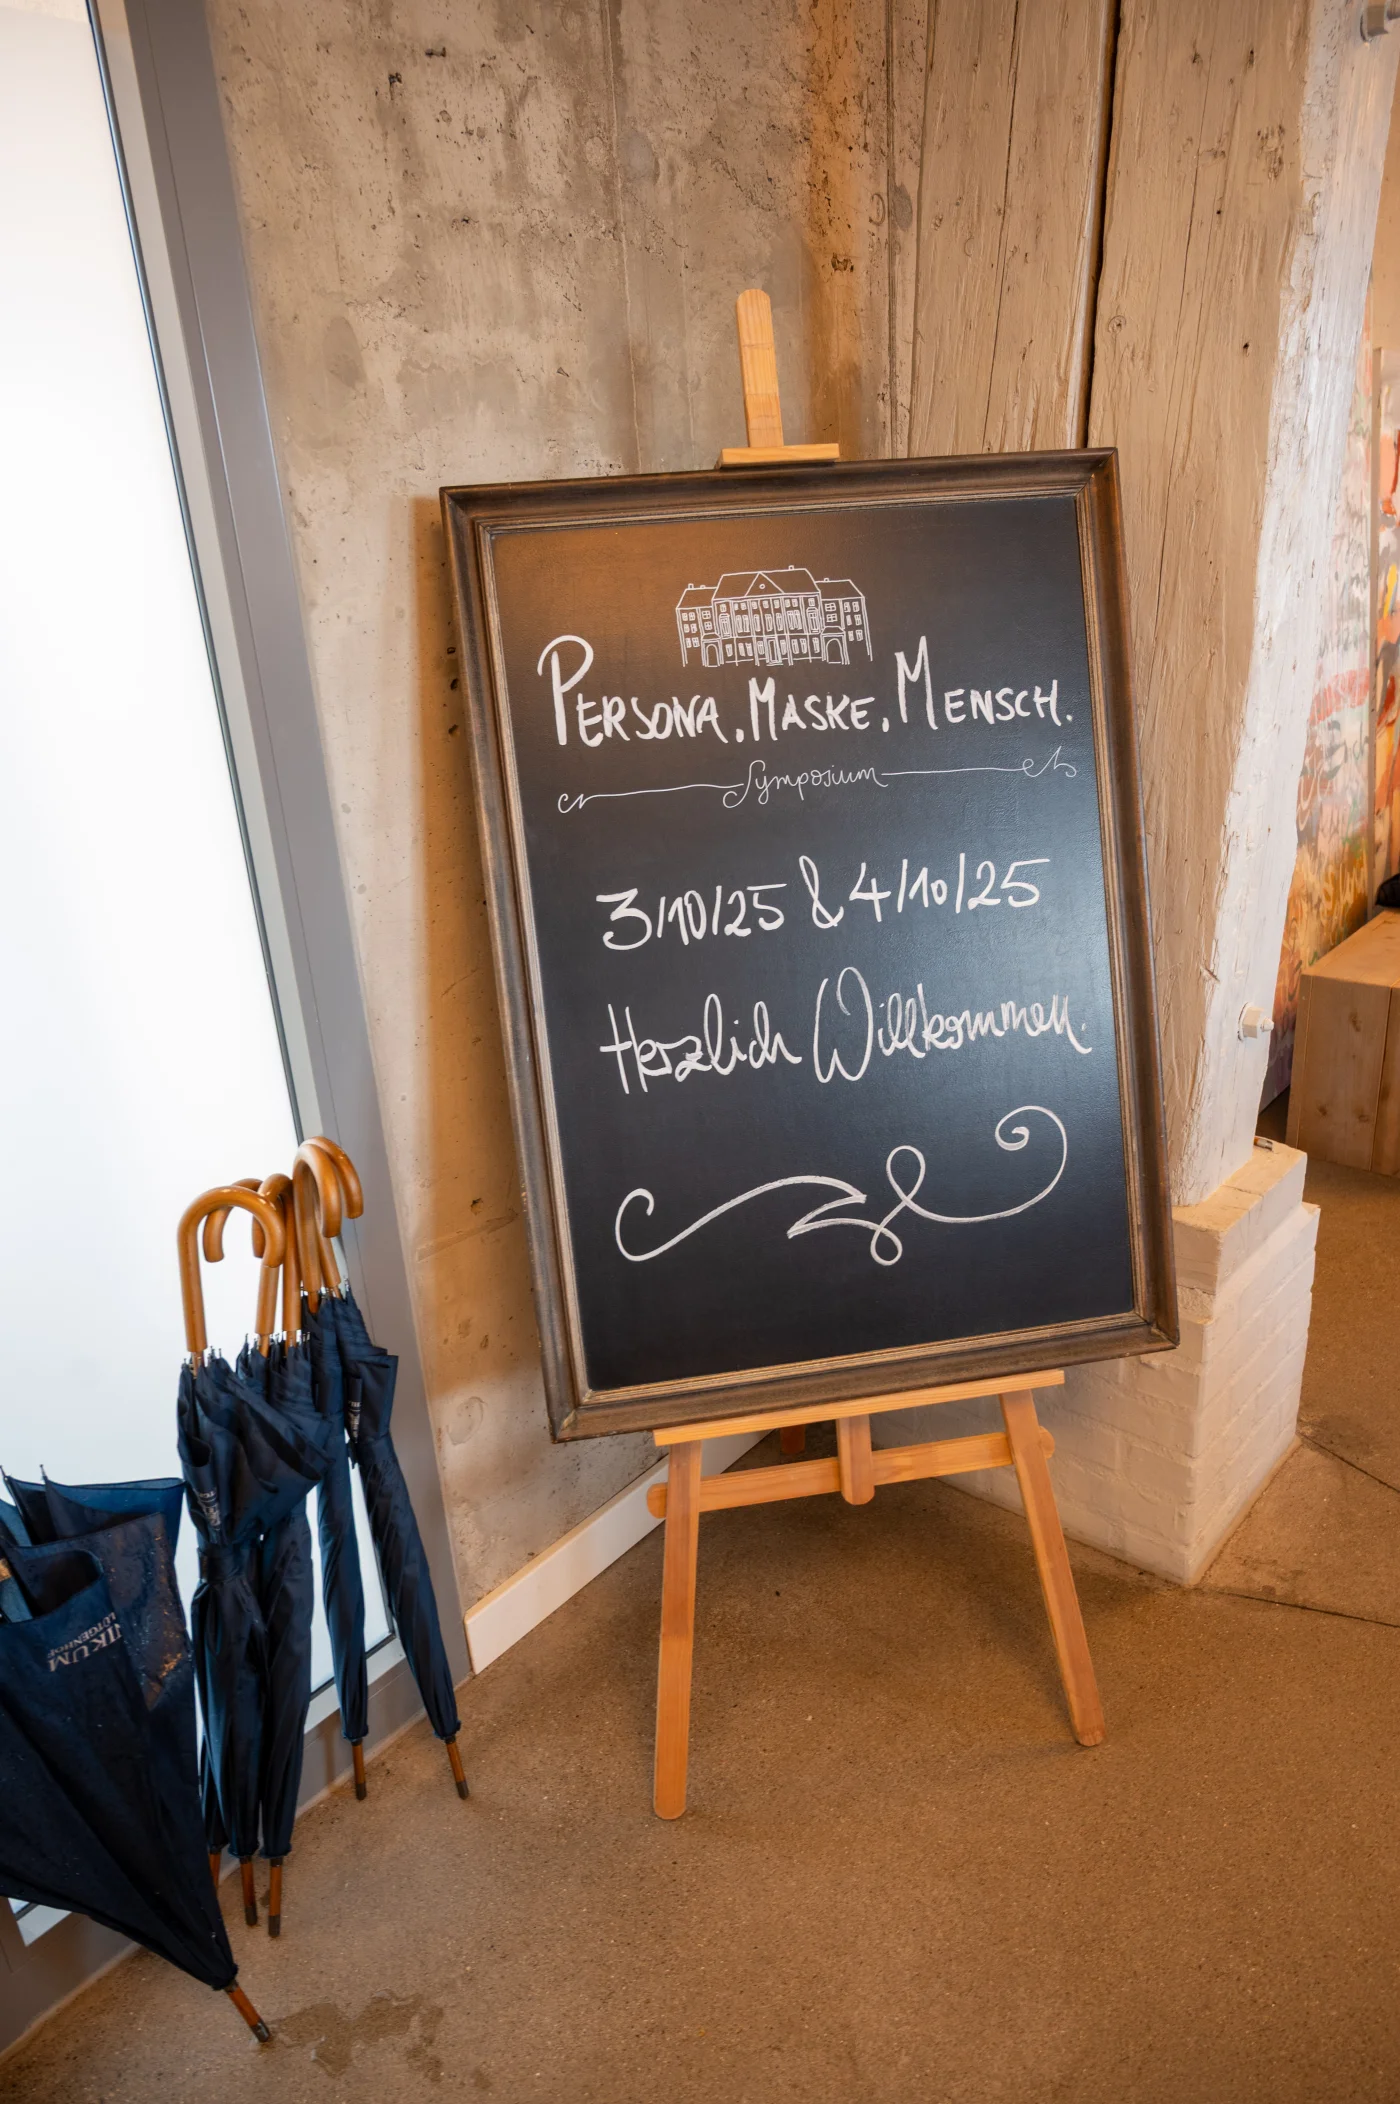 PERSONA. MASKE. MENSCH.
Symposium
3/10/25 & 4/10/25
Herzlich Willkommen.